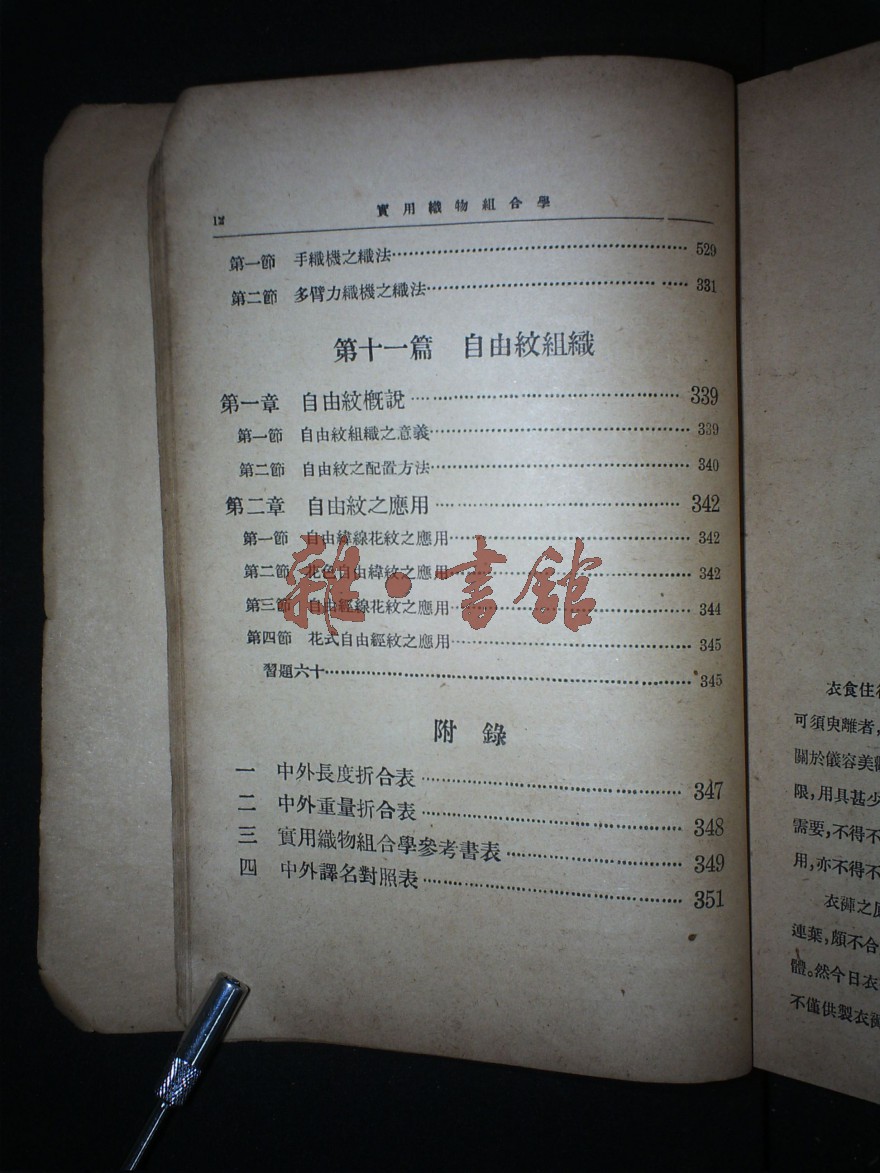 12 實用織物組合學
第一節 手織機之織法 529
第二節 多臂力織機之織法 331
第十一篇 自由紋組織
第一章 自由紋概說 339
第一節 自由紋組織之意義 339
第二節 自由紋之配置方法 340
第二章 自由紋之應用 342
第一節 自由緯線花紋之應用 342
第二節 花色自由緯紋之應用 342
第三節 自由經線花紋之應用 344
第四節 花式自由經紋之應用 345
習題六十 345
附錄
一 中外長度折合表 347
二 中外重量折合表 348
三 實用織物組合學參考書表 349
四 中外譯名對照表 351
雜·書館
衣食住
可須臾離者，
關於儀容美
限，用具甚少
需要，不得不
用，亦不得不
衣褲之
連葉，頗不合
體。然今日衣
不僅供製衣